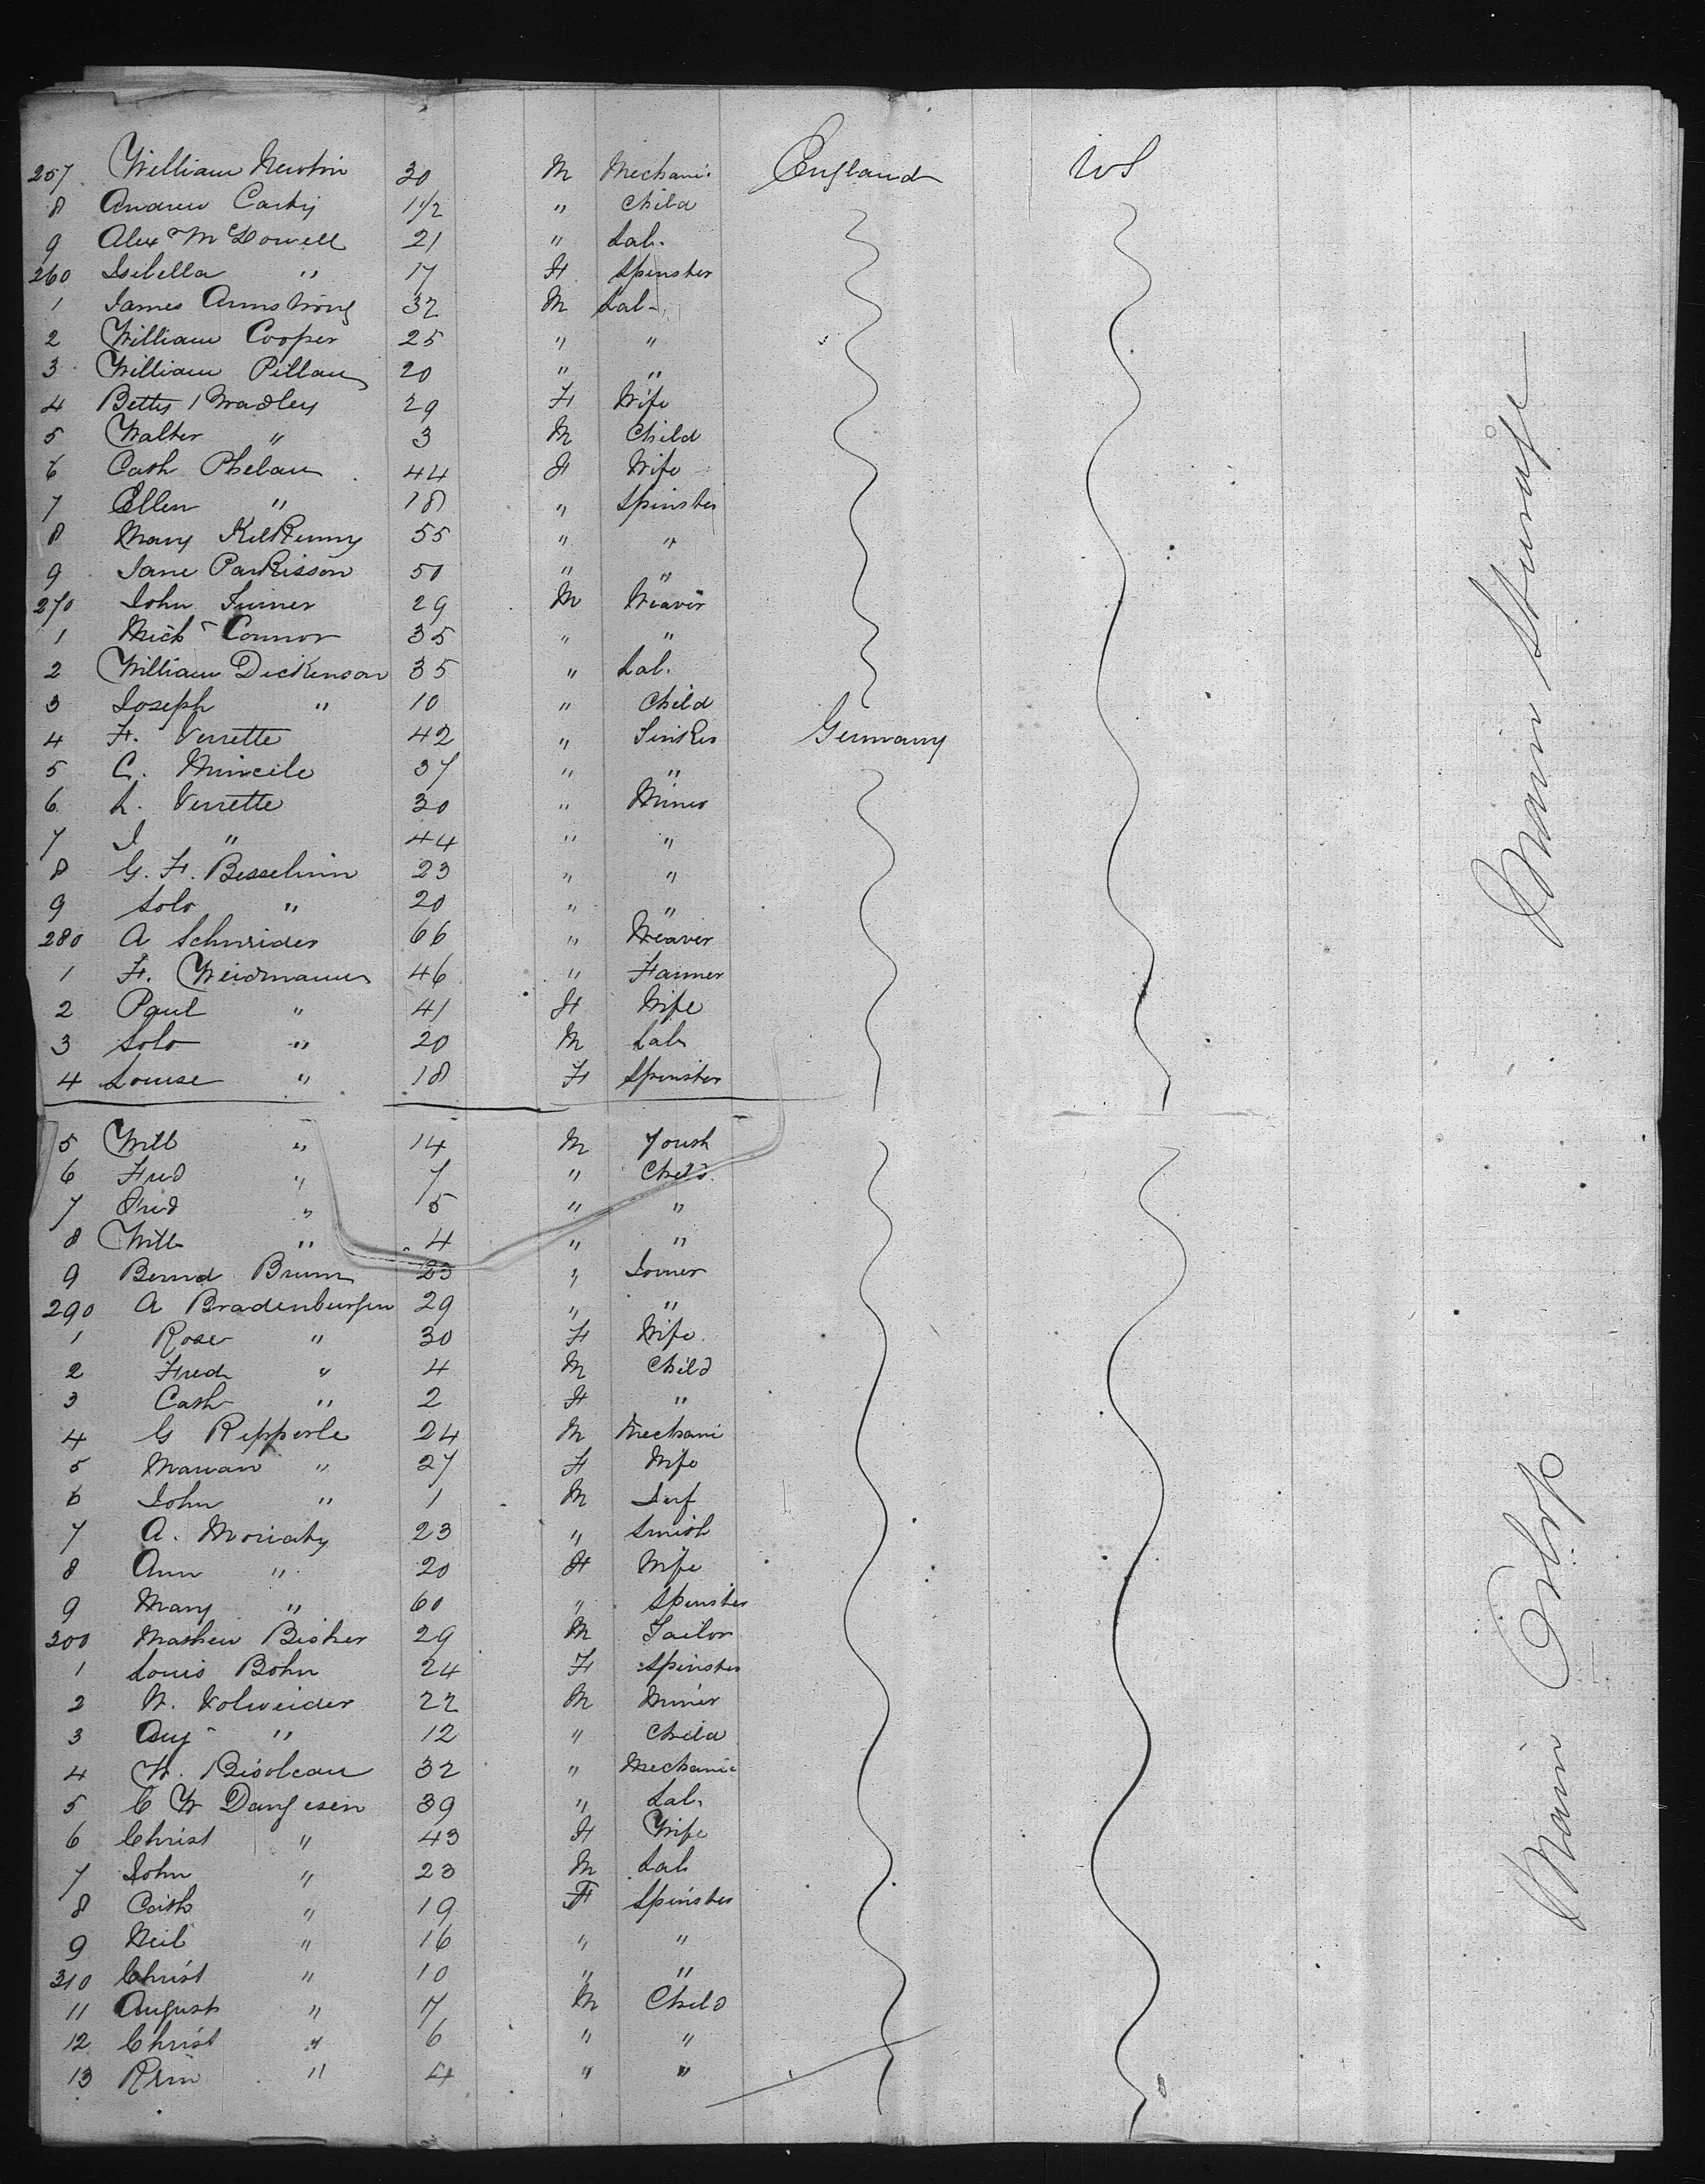 257 William Newton 30 M Mechanic England US
8 Andrew Carty 1 1/2 " Child
9 Alexr McDowell 21 " Lab.
260 Isibella " 17 F Spinster
1 James Armstrong 32 M Lab.
2 William Cooper 25 " "
3 William Pillau 20 " "
4 Betty Wradley 29 F Wife
5 Walter " 3 M Child
6 Cath Phelan 44 F Wife
7 Ellen " 18 " Spinster
8 Mary KilKenny 55 " "
9 Jane Parkisson 50 " "
270 John Turner 29 M Weaver
1 Michl Connor 35 " "
2 William Dickenson 35 " Lab.
3 Joseph " 10 " Child
4 F. Verrette 42 " Sinker Germany
5 C. Mincile 37 " "
6 L. Verrette 30 " Miner
7 J " 44 " "
8 G. F. Besselinin 23 " "
9 Solo " 20 " "
280 A Schneider 66 " Weaver
1 F. Weidmann 46 " Farmer
2 Paul " 41 F Wife
3 Solo " 20 M Lab
4 Louise " 18 F Spinster
5 Will " 14 M Youth
6 Fred " 7 " Child
7 Fred " 5 " "
8 Will " 4 " "
9 Bernd Brunn 23 " Joiner
290 A Bradenburgen 29 " "
1 Rose " 30 F Wife
2 Fred " 4 M Child
3 Cath " 2 F "
4 G Repperle 24 M Mechani
5 Marian " 27 F Wife
6 John " 1 M Inf
7 A. Moriaty 23 " Smith
8 Ann " 20 F Wife
9 Mary " 60 " Spinster
300 Mathew Bisher 29 M Tailor
1 Louis Bohn 24 F Spinster
2 W. Volweider 22 M Miner
3 Aug " 12 " Child
4 W. Bisoleau 32 " Mechanic
5 C W Dangesen 39 " Lab.
6 Christ " 43 F Wife
7 John " 23 M Lab
8 Cath " 19 F Spinster
9 Neil " 16 " "
310 Christ " 10 " "
11 August " 7 M Child
12 Christ " 6 " "
13 " 4 " "
Main Steerage
Main Orlop